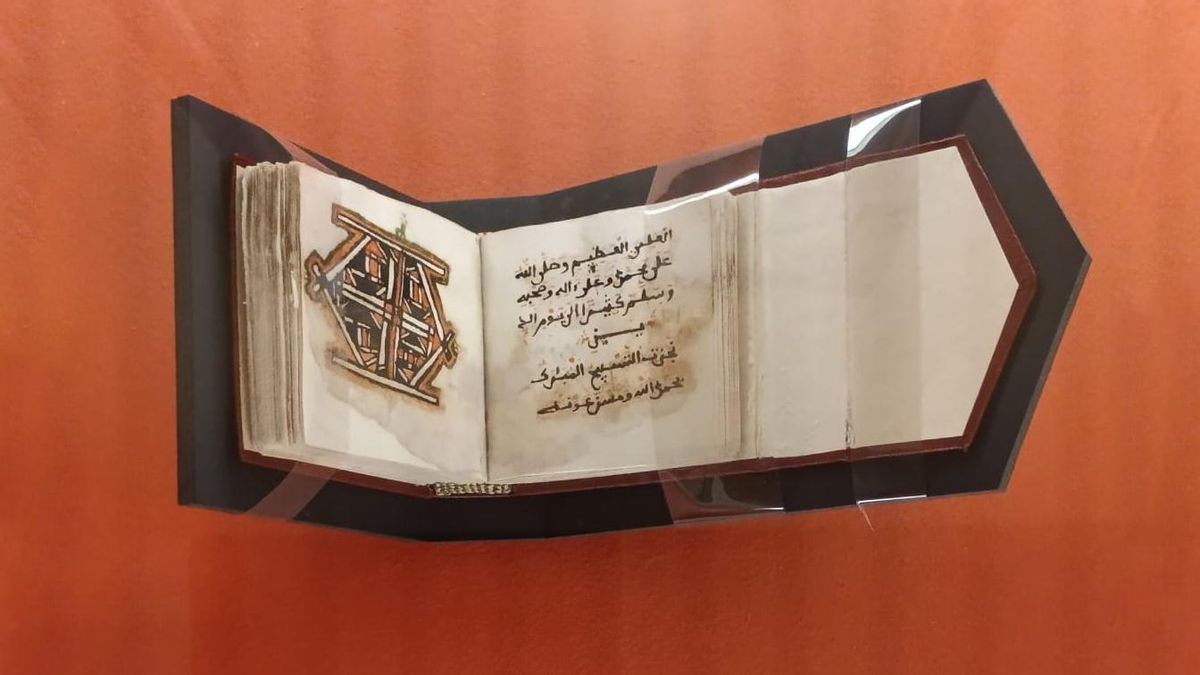 العلي العظيم وصلى الله
على محمد وعلى اله وصحبه
وسلم كثيرا الى يوم الد
ين
نجزت التسبيح المبارك
بحمد الله وحسن عونه